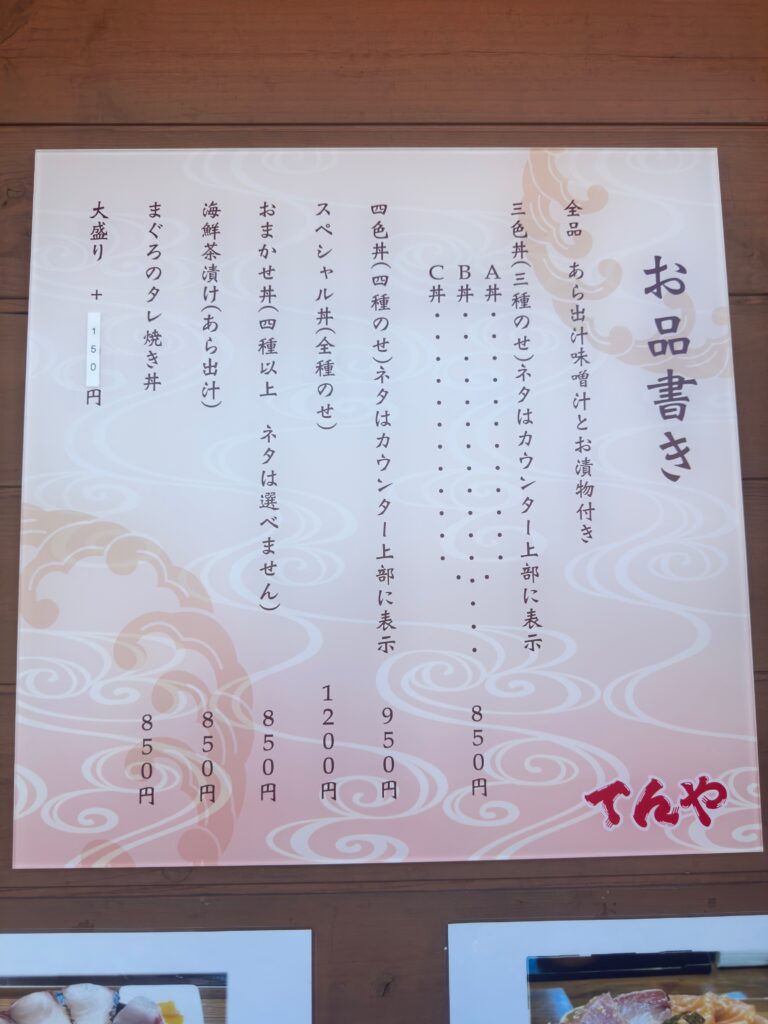 お品書き
全品 あら出汁味噌汁とお漬物付き
三色丼(三種のせ)ネタはカウンター上部に表示
A丼・・・・・・・・・・・
B丼・・・・・・・・・・・・・ 850円
C丼・・・・・・・・・・
四色丼(四種のせ)ネタはカウンター上部に表示 950円
スペシャル丼(全種のせ) 1200円
おまかせ丼(四種以上 ネタは選べません) 850円
海鮮茶漬け(あら出汁) 850円
まぐろのタレ焼き丼 850円
大盛り + 150円
てんや